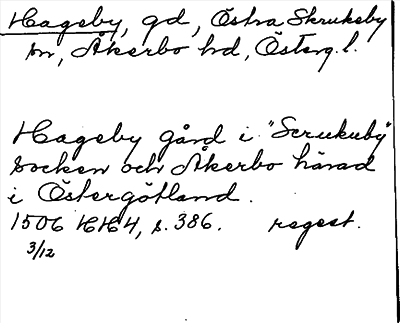 Hageby, gd, Östra Skrukeby
sn, Åkerbo hd, Österg. l.
Hageby gård i "Scrukuby"
socken och Åkerbo härad
i Östergötland.
1506 HH4, s. 386. regest.
3/12